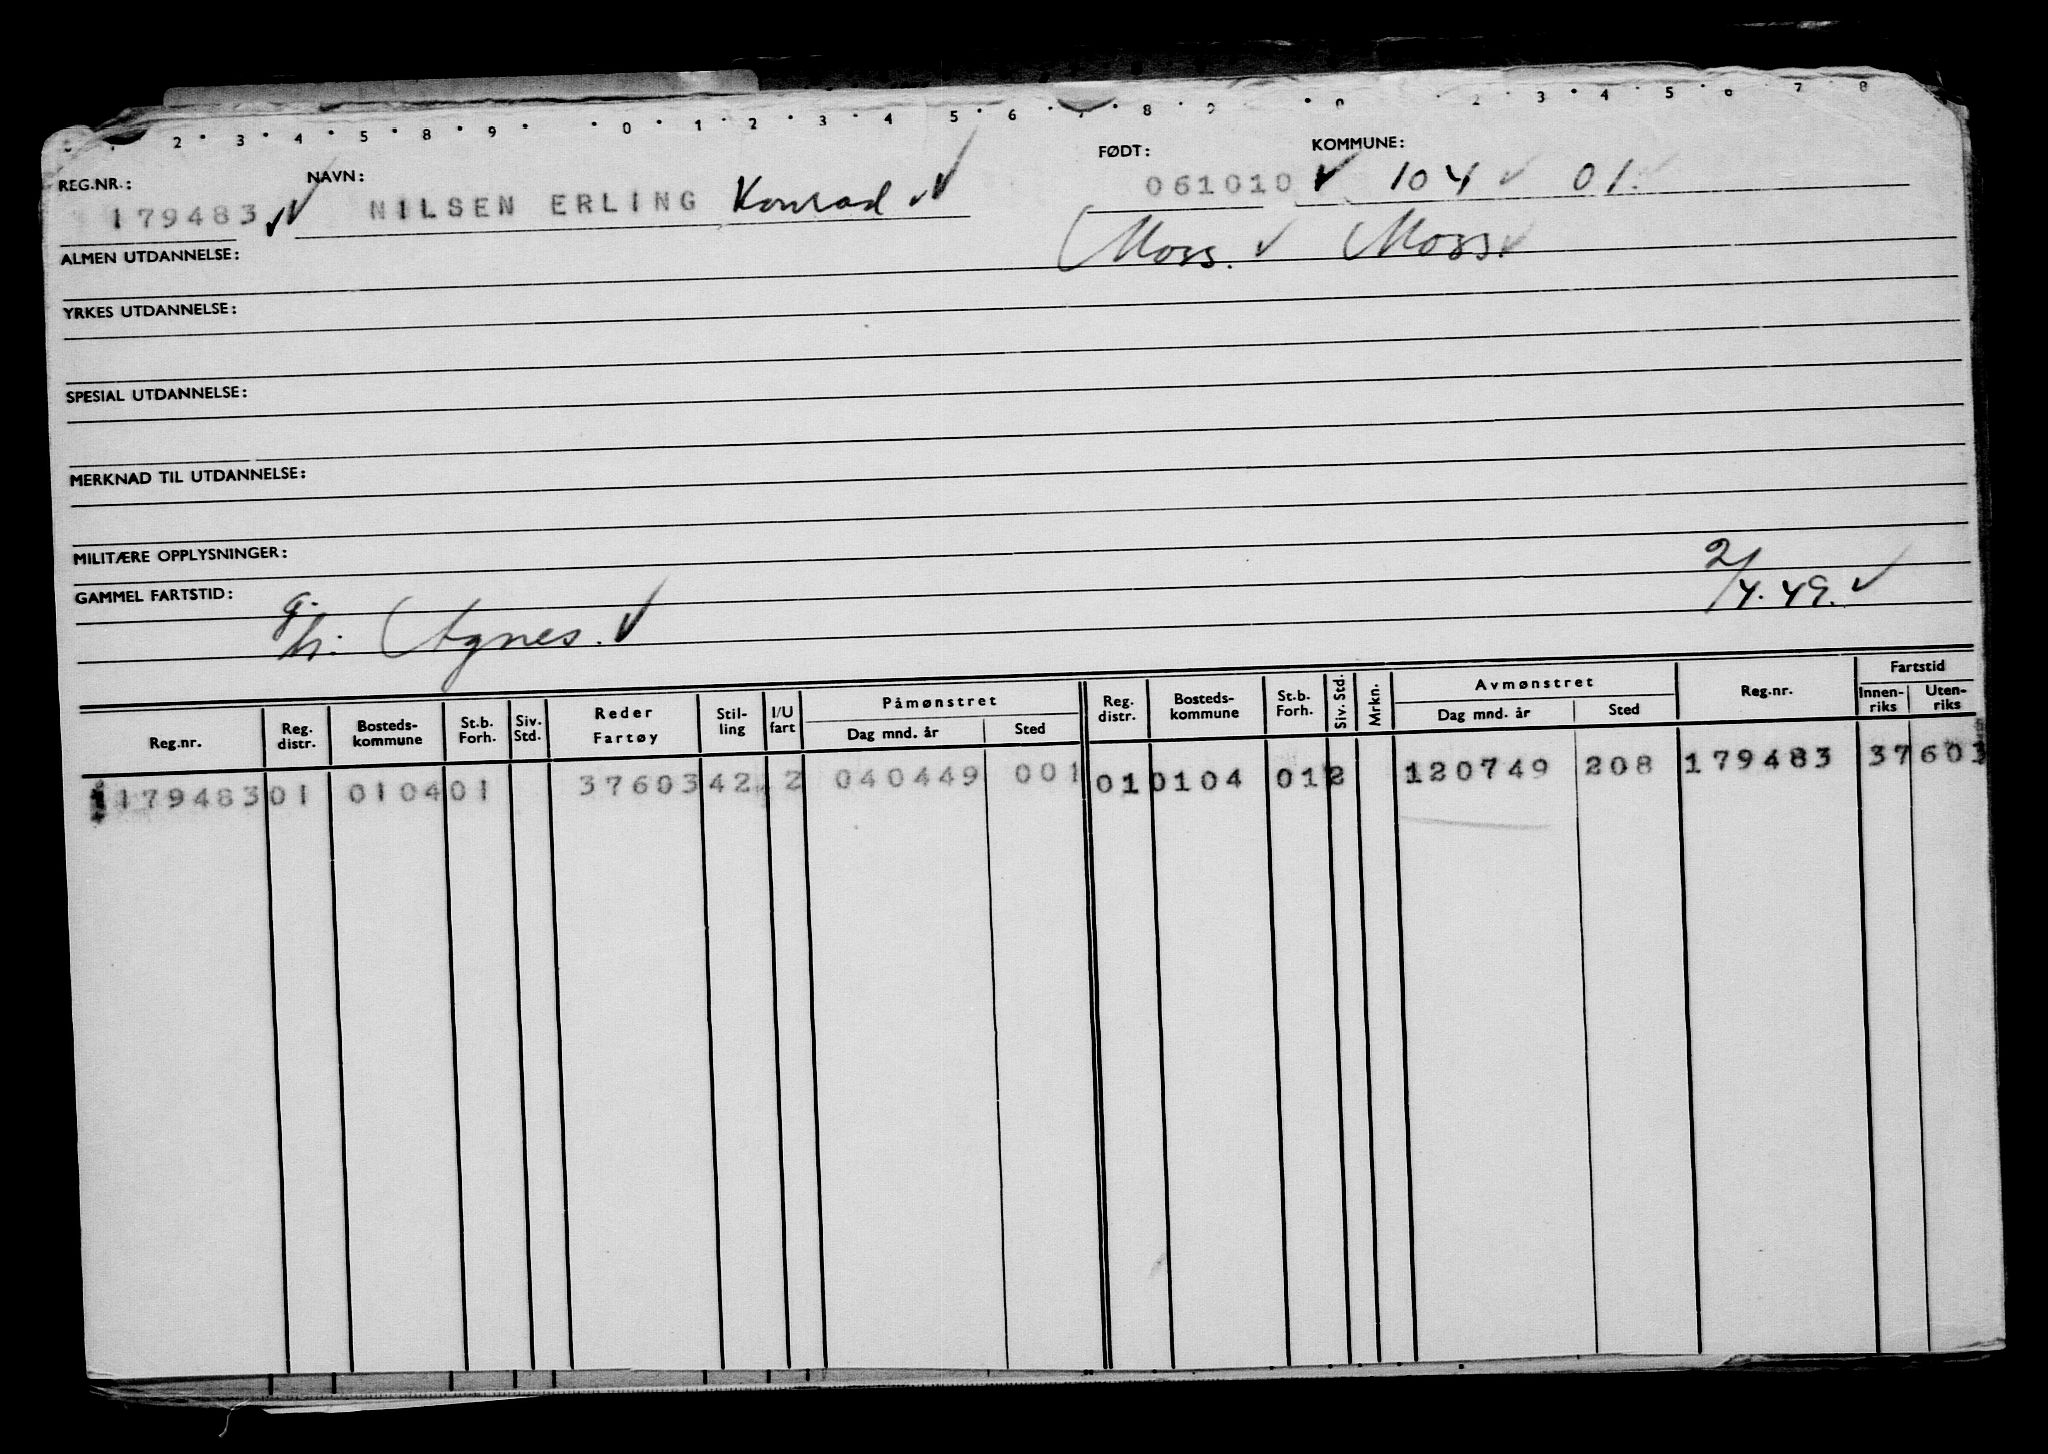 2 3 4 5 8 9 0 1 2 3 4 5 6 7 8 9 0 2 3 4 5 6 7 8
REG.NR.: NAVN: FØDT: KOMMUNE:
179483 NILSEN ERLING Konrad 061010 104 01.
Moss. Moss.
ALMEN UTDANNELSE:
YRKES UTDANNELSE:
SPESIAL UTDANNELSE:
MERKNAD TIL UTDANNELSE:
MILITÆRE OPPLYSNINGER:
GAMMEL FARTSTID:
g. h. Agnes. 2/4.49.
Reg.nr. Reg. distr. Bosteds-kommune St.b. Forh. Siv. Std. Reder Fartøy Stil-ling I/U fart Påmønstret Dag mnd. år Sted Reg. distr. Bosteds-kommune St.b. Forh. Siv. Std. Mrkn. Avmønstret Dag mnd. år Sted Reg.nr. Fartstid Innen-riks Uten-riks
179483 01 0104 01 37603 42 2 040449 001 01 0104 01 2 120749 208 179483 37603